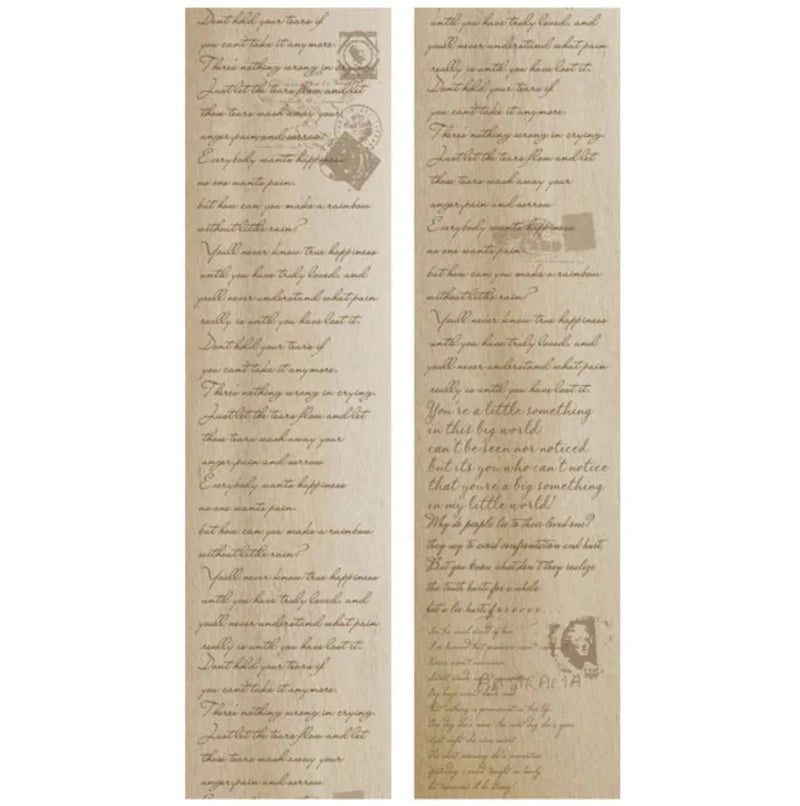 Dont hold your tears if
you cant take it anymore.
There's nothing wrong in crying.
Just let the tears flow and let
those tears wash away your
anger,pain and sorrow.
Everybody wants happiness
no one wants pain.
but how can you make a rainbow
without little rain?
Youll never know true happiness
until you have truly loved, and
youll never understand what pain
really is until you have lost it.
Dont hold your tears if
you cant take it anymore.
There's nothing wrong in crying.
Just let the tears flow and let
those tears wash away your
anger,pain and sorrow
Everybody wants happiness
no one wants pain.
but how can you make a rainbow
without little rain?
Youll never know true happiness
until you have truly loved, and
youll never understand what pain
really is until you have lost it.
Dont hold your tears if
you cant take it anymore.
There's nothing wrong in crying.
Just let the tears flow and let
those tears wash away your
anger,pain and sorrow
until you have truly loved, and
youll never understand what pain
really is until you have lost it.
Dont hold your tears if
you cant take it anymore.
Theres nothing wrong in crying.
Just let the tears flow and let
those tears wash away your
anger,pain and sorrow
Everybody wants happiness
no one wants pain
but how can you make a rainbow
without little rain?
Youll never know true happiness
until you have truly loved, and
youll never understand what pain
really is until you have lost it.
You're a little something
in this big world
can't be seen nor noticed
but its you who can't notice
that you're a big something
in my little world!
Why do people lie to their loved one?
they say to avoid confrontation and hurt,
But you know what don't they realize
the truth hurts for a while
but a lie hurts forever...